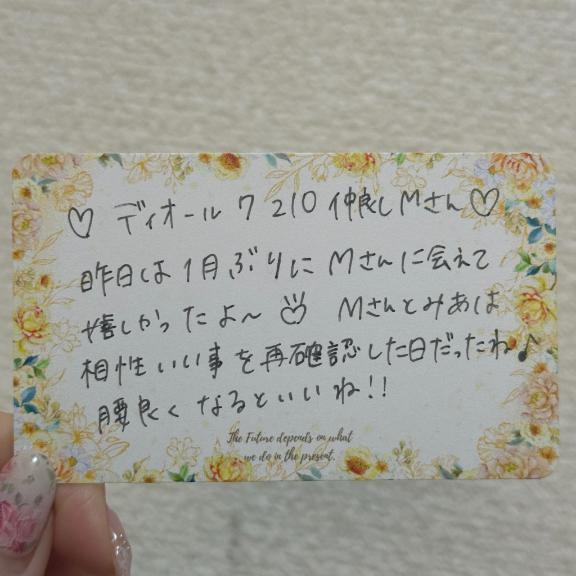 ♡ ディオール 7 210 仲良しMさん♡
昨日は1月ぶりにMさんに会えて
嬉しかったよ〜 Mさんとみあは
相性いい事を再確認した日だったね♪
腰良くなるといいね!!
The Future depends on what
we do in the present.